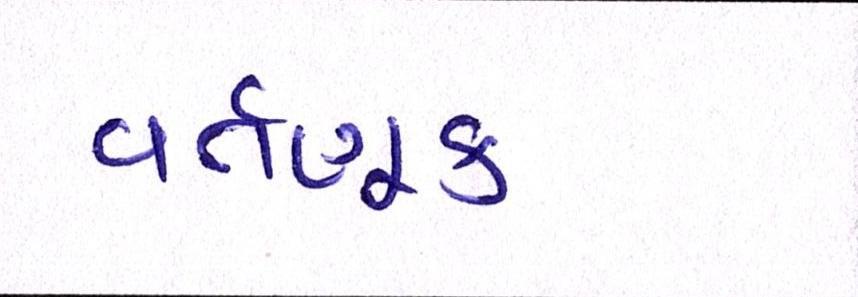 વર્તણૂક